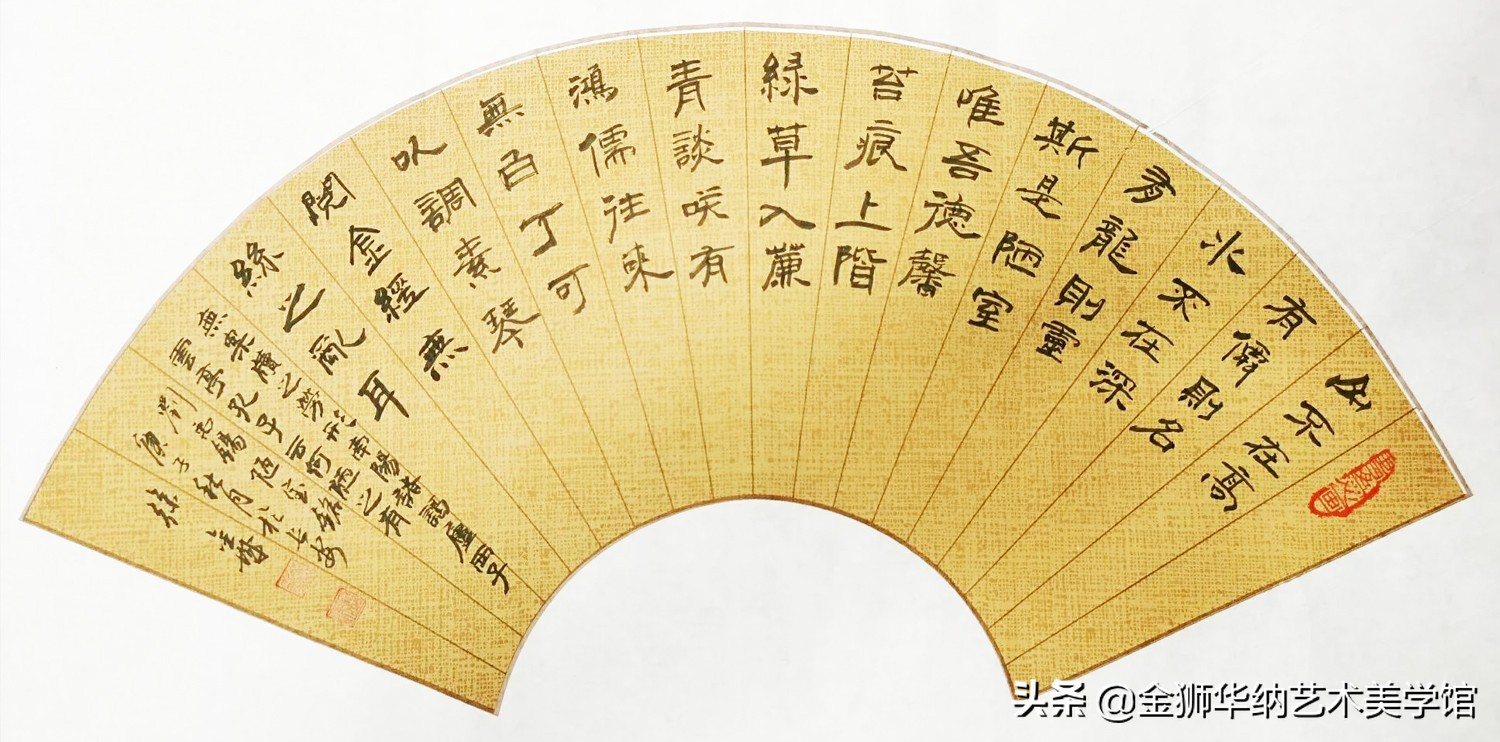 山不在高
有僊則名
水不在深
有龍則靈
斯是陋室
唯吾德馨
苔痕上階
緑草入簾
青談咲有
鴻儒往來
無白丁可
以調素琴
閱金經無
絲之亂耳
無案牘之勞形南陽諸葛廬西子
雲亭孔子云何陋之有
劉禹錫陋室銘
庚子秋月於長安
徐
头条 @金狮华纳艺术美学馆